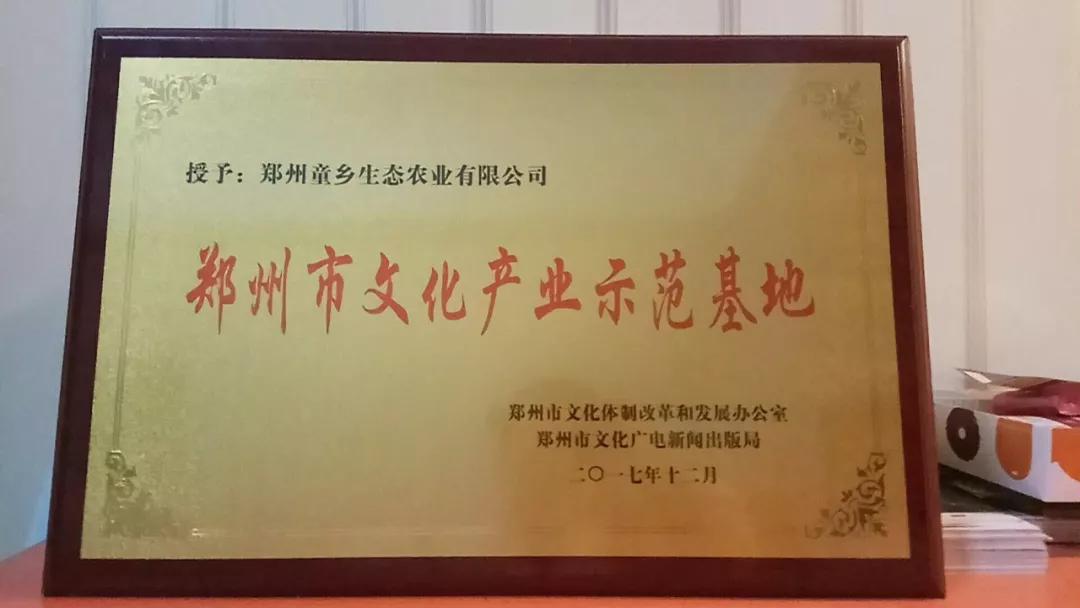 授予：郑州童乡生态农业有限公司
郑州市文化产业示范基地
郑州市文化体制改革和发展办公室
郑州市文化广电新闻出版局
二〇一七年十二月